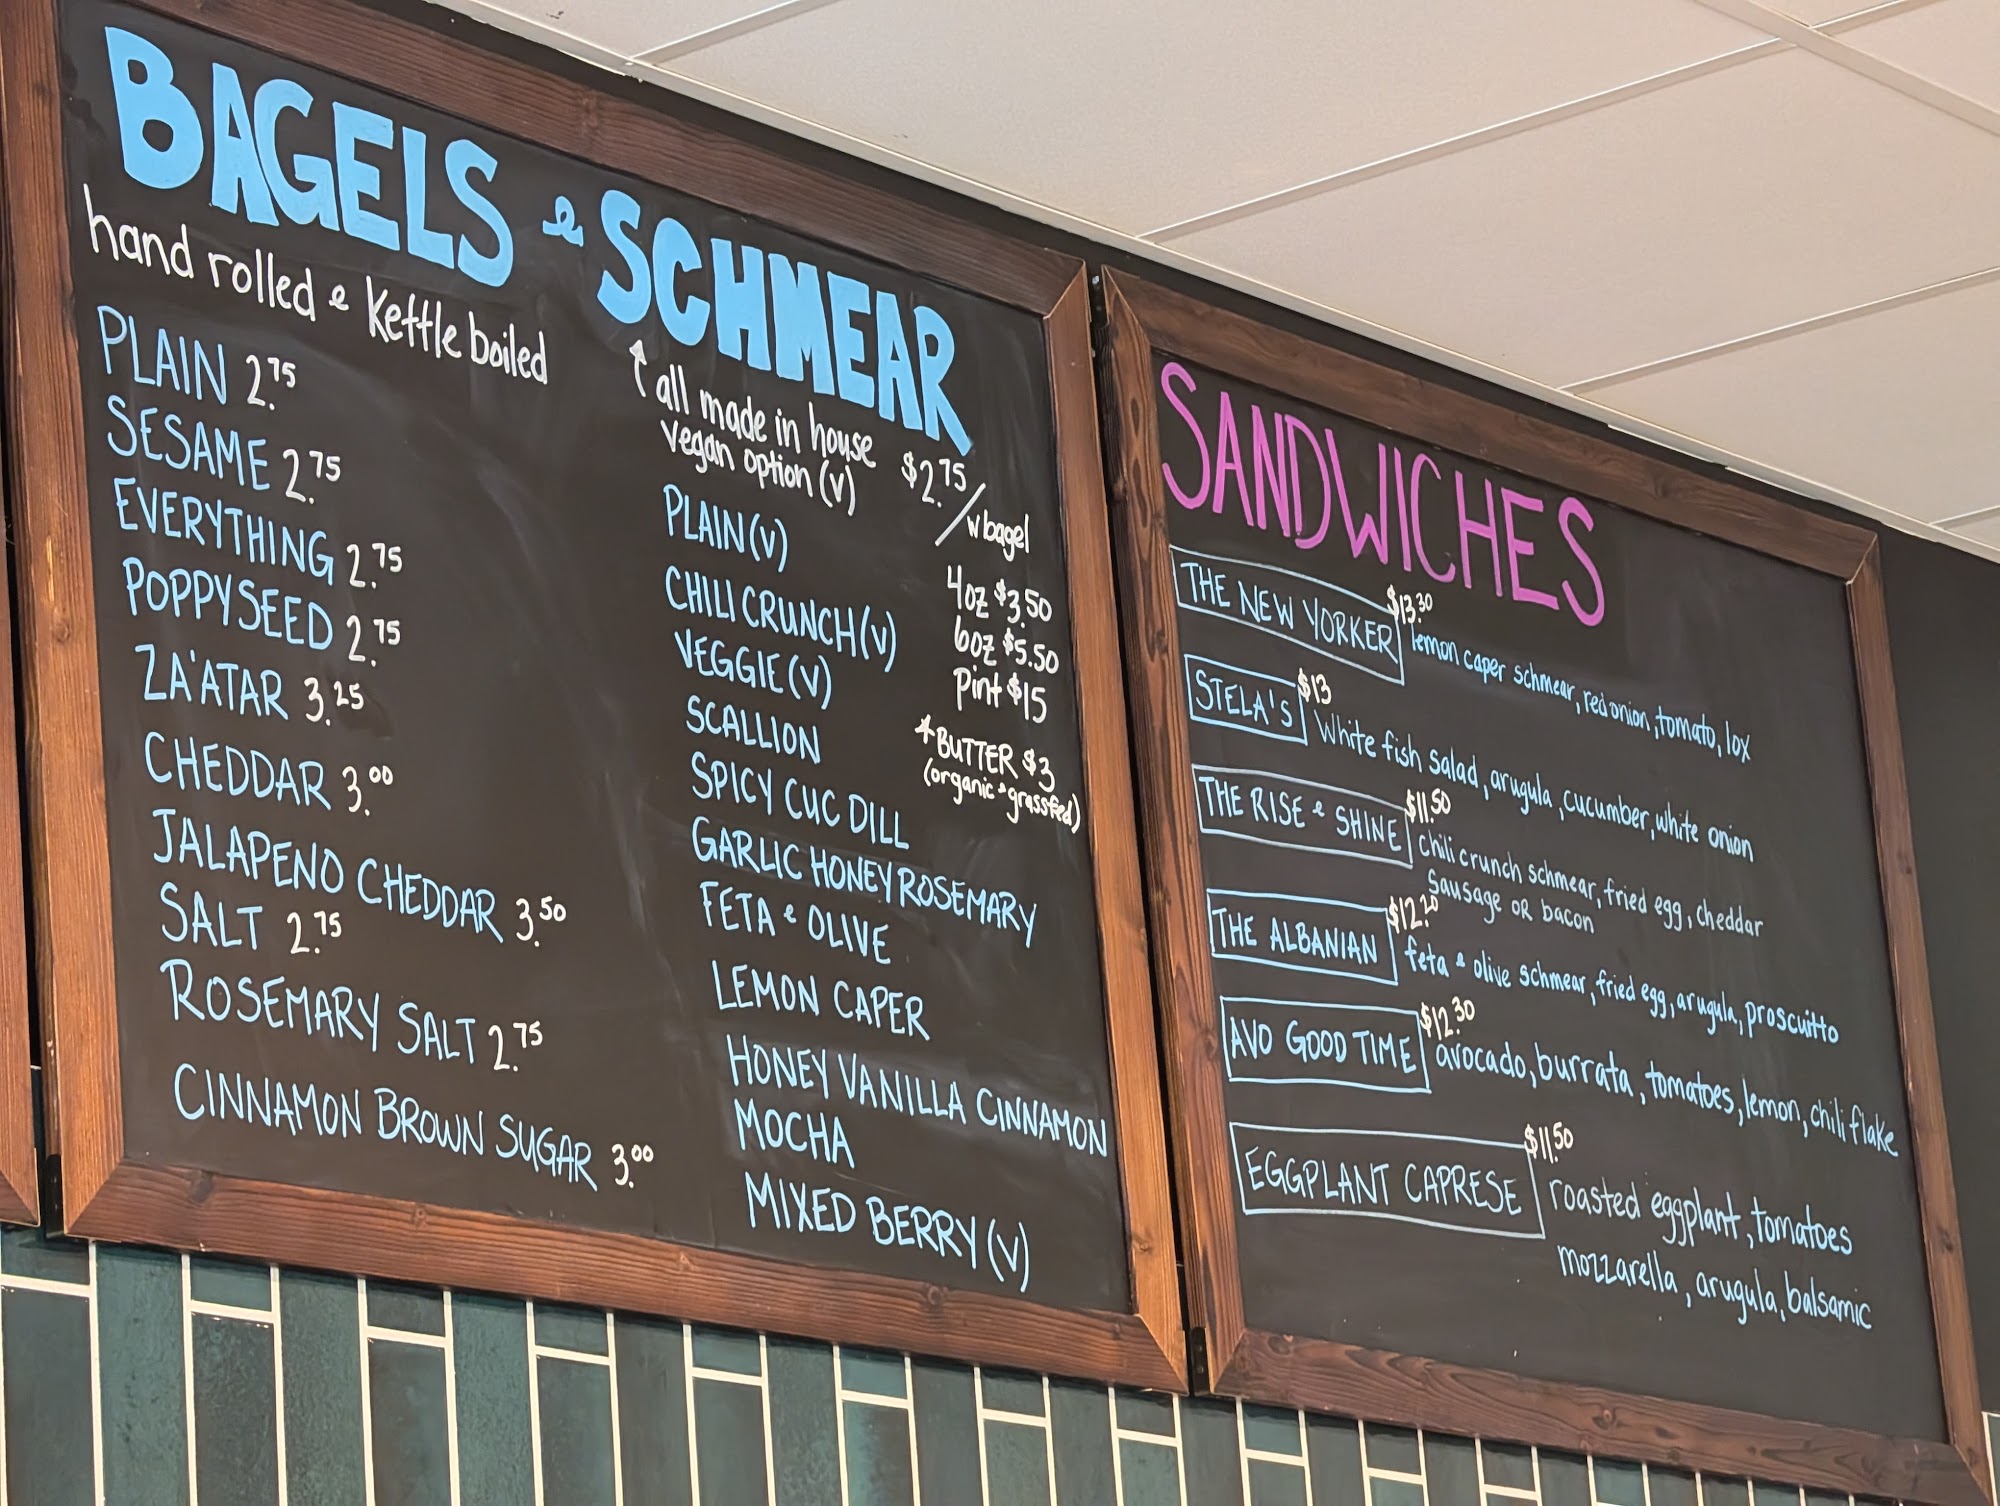 BAGELS & SCHMEAR
hand rolled & kettle boiled
PLAIN 2.75
SESAME 2.75
EVERYTHING 2.75
POPPYSEED 2.75
ZA'ATAR 3.25
CHEDDAR 3.00
JALAPENO CHEDDAR 3.50
SALT 2.75
ROSEMARY SALT 2.75
CINNAMON BROWN SUGAR 3.00
all made in house
vegan option (v)
PLAIN (V)
CHILI CRUNCH (V)
VEGGIE (V)
SCALLION
SPICY CUC DILL
GARLIC HONEY ROSEMARY
FETA & OLIVE
LEMON CAPER
HONEY VANILLA CINNAMON
MOCHA
MIXED BERRY (V)
$2.75/w bagel
4oz $3.50
6oz $5.50
Pint $15
*BUTTER $3
(organic & grassfed)
SANDWICHES
THE NEW YORKER $13.30
lemon caper schmear, red onion, tomato, lox
STELA'S $13
White fish salad, arugula, cucumber, white onion
THE RISE & SHINE $11.50
chili crunch schmear, fried egg, cheddar
sausage OR bacon
THE ALBANIAN $12.20
feta & olive schmear, fried egg, arugula, proscuitto
AVO GOOD TIME $12.30
avocado, burrata, tomatoes, lemon, chili flake
EGGPLANT CAPRESE $11.50
roasted eggplant, tomatoes
mozzarella, arugula, balsamic